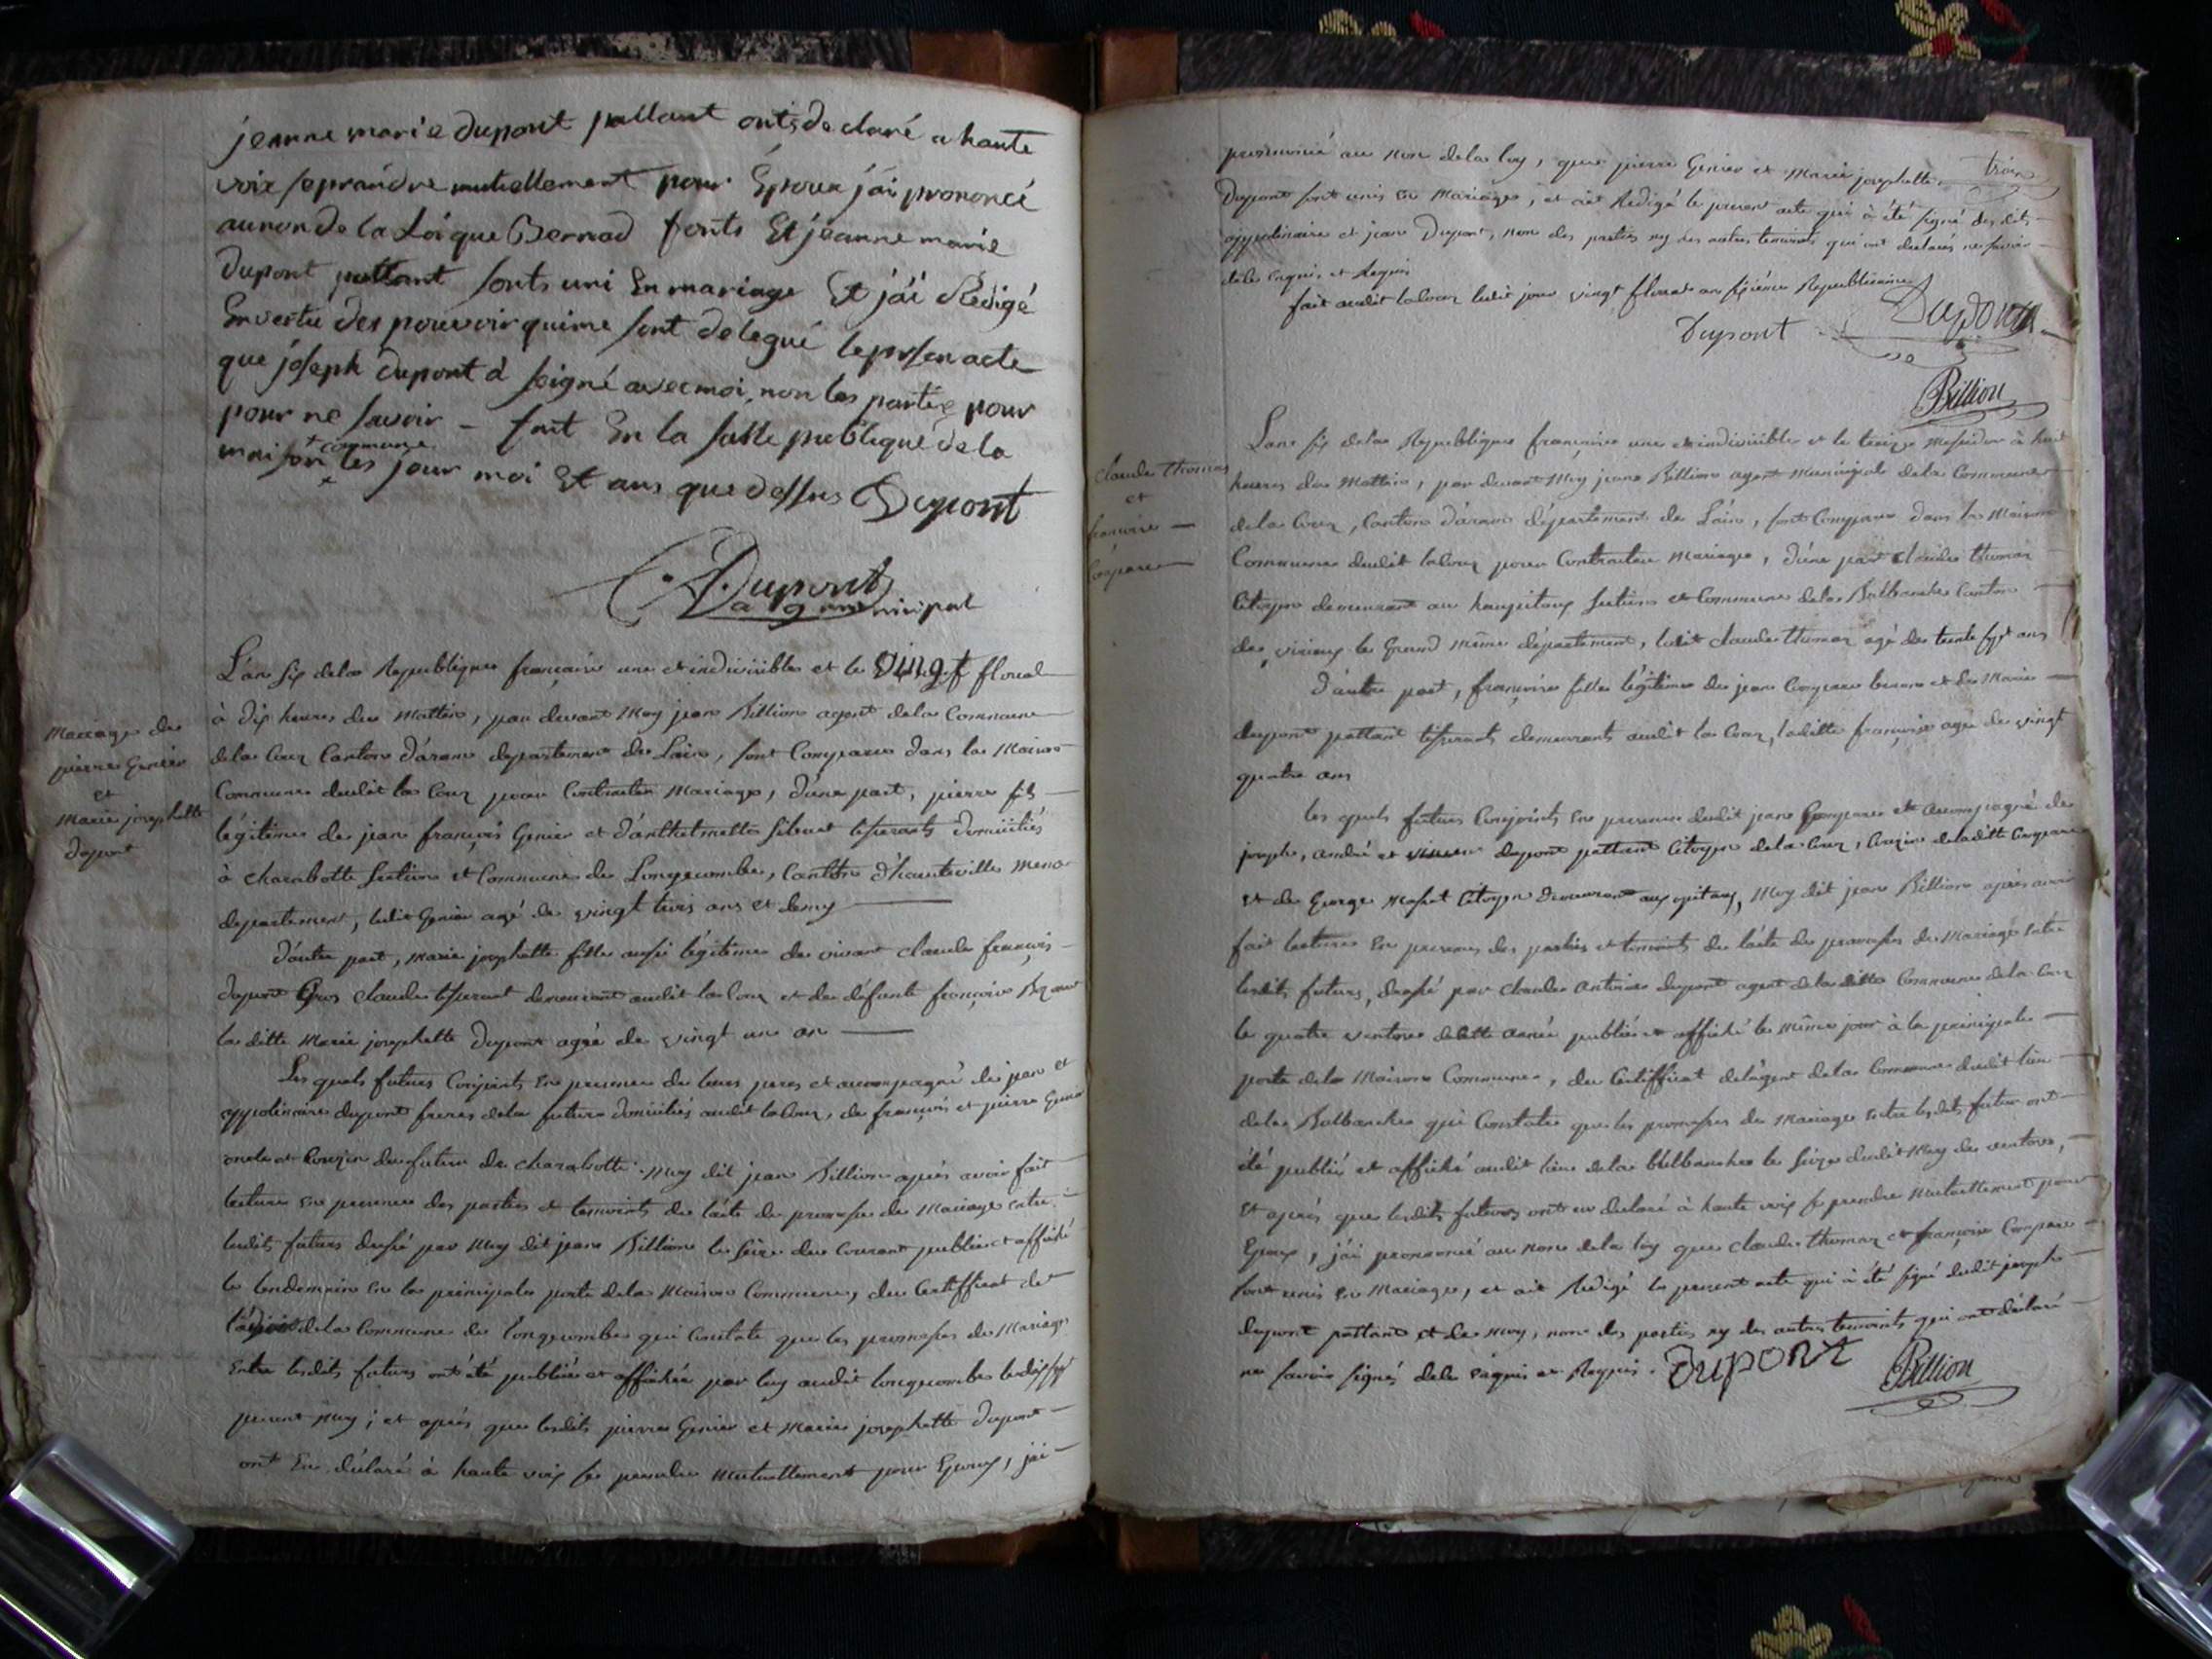 jeanne marie dupont pallant onts declaré a haute
voix se prandre mutuellement pour Epoux j'ai prononcé
au non de la Loi que Bernad fonts Et jeanne marie
dupont pallant sonts uni En mariage Et j'ai Rédigé
En vertu des pouvoir qui me sont delegué le presen acte
que joseph dupont a seigné avec moi, non les partie pour
pour ne savoir - fait En la salle publique de la
maison + commune les jour moi Et ans que dessus Dupont
Dupont
agent municipal
Mariage de
pierre Genier
et
Marie josephette
dupont
L'an six de la Republique française une et indivisible et le vingt floreal
à dix heures du Mattin, par devant Moy jean Billion agent de la Commune
de la Coux Canton d'aranc departement de L'ain, sont Comparus dans la Maison
Commune dudit la Coux pour Contracter Mariage, d'une part, pierre fils
légitime de jean françois Genier et d'anthelmette Sibuet tisserants domiciliés
à charabotte section et Commune de Longecombe, Canton d'hauteville meme
departement, ledit Genier agé de vingt trois ans et demy
d'autre part, Marie josephette fille aussi légitime de vivant claude françois
dupont Gros claude tisserant demeurant audit la Coux et de défunte françoise
la ditte Marie josephette Dupont agée de vingt un an
Les quels futurs Conjoints en presence de leurs peres et accompagné de jean et
appolinaire dupont freres de la future domiciliés audit la Coux, de françois et pierre Genier
oncle et Couzin du futur de charabotte. Moy dit jean Billion après avoir fait
lecture en presence des parties et temoints de l'acte de promesse de Mariage entre
lesdits futurs dressé par Moy dit jean Billion le seize du Courant publié et affiché
le lendemain en la principale porte de la Maison Commune, du Certifficat de
de la Commune de longecombe qui Constate que les promesses de Mariage
Entre lesdits futurs ont été publiée et affichée par luy audit longecombe le dix sept
present moy; et après que lesdits pierre Genier et Marie josephette dupont
ont Eu déclaré à haute voix se prendre Mutuellement pour Epoux, j'ai
trois
prononcé au Nom de la loy, que pierre Genier et Marie josephette
Dupont sont unis en Mariage, et ait Redigé le present acte qui à été signé desdits
appolinaire et jean Dupont, non des parties ny des autres temoints qui ont déclarés ne savoir
de les enquis et Requis
fait audit la Coux ledit jour vingt floreal an sixième Republicaine
Dupont
Dupont
Billion
claude thomas
et
françoise
Compare
L'an six de la Republique française une et indivisible et le treize Messidor à huit
heures du Mattin, par devant Moy jean Billion agent Municipal de la Commune
de la Coux, Canton d'aranc département de L'ain, sont Comparus dans la Maison
Commune dudit la Coux pour Contracter Mariage, d'une part claude thomas
Citoyen demeurant au section et Commune de la Balbanche Canton
de virieux le Grand même département, ledit claude thomas agé de trente sept ans
d'autre part, françoise fille légitime de jean Compare et de Marie
dupont pallant tisserants demeurants audit la Coux, laditte françoise agée de vingt
quatre ans
les quels futurs Conjoints en presence dudit jean Compare et accompagné de
joseph, andré et dupont pallant Citoyen de la Coux, Couzin de laditte Compare
et de George Citoyen demeurant aux opitaux, Moy dit jean Billion après avoir
fait lecture en presence des parties et temoints de l'acte de promesses de Mariage entre
lesdits futurs, dressé par claude antoine dupont agent de la ditte Commune de la Coux
le quatre ventose de cette année publiée et affiché le même jour à la principale
porte de la Maison Commune, du Certifficat de l'agent de la Commune dudit lieu
de la Balbanche qui Constate que les promesses de Mariage entre lesdits futur ont
été publiés et affiché audit lieu de la Balbanche le seize dudit Moy de ventose,
et après que lesdits futurs ont eu déclaré à haute voix se prendre Mutuellement pour
Epoux, j'ai prononcé au Nom de la loy que claude thomas et françoise Compare
sont unis en Mariage, et ait Redigé le present acte qui à été signé dudit joseph
dupont pallant et de Moy, non des parties ny des autres temoints qui ont déclaré
ne savoir signés de les enquis et Requis. Dupont Billion